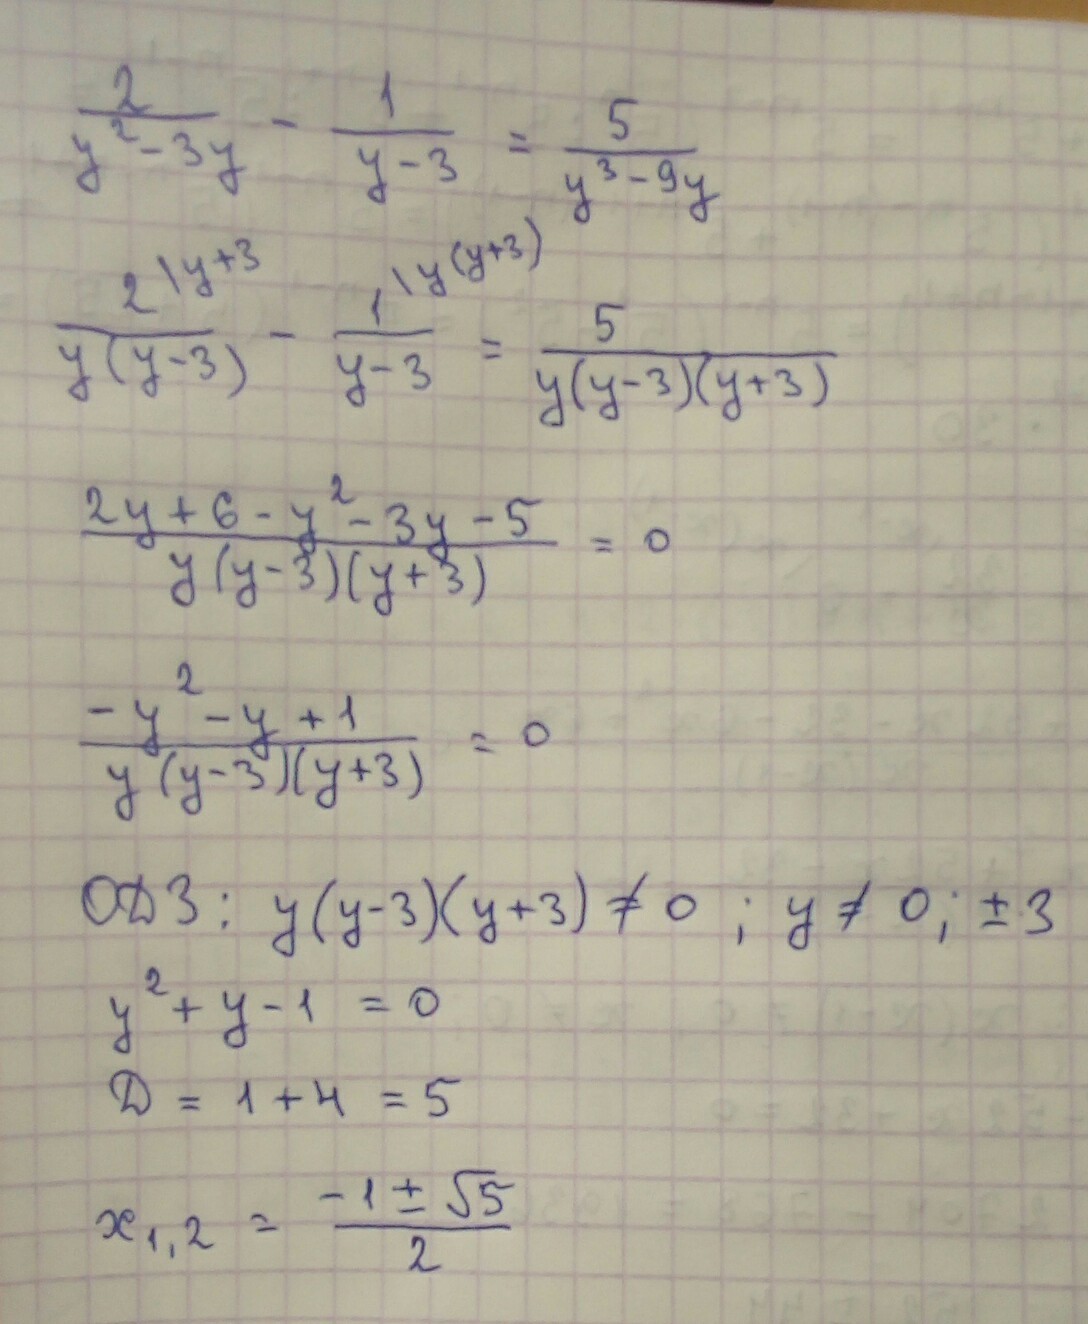 2/(y² - 3y) - 1/(y - 3) = 5/(y³ - 9y)
2\y+3/(y(y-3)) - 1\y(y+3)/(y-3) = 5/(y(y-3)(y+3))
(2y + 6 - y² - 3y - 5)/(y(y-3)(y+3)) = 0
(-y² - y + 1)/(y(y-3)(y+3)) = 0
ОДЗ: y(y-3)(y+3) ≠ 0 ; y ≠ 0; ±3
y² + y - 1 = 0
D = 1 + 4 = 5
x₁,₂ = (-1 ± √5)/2